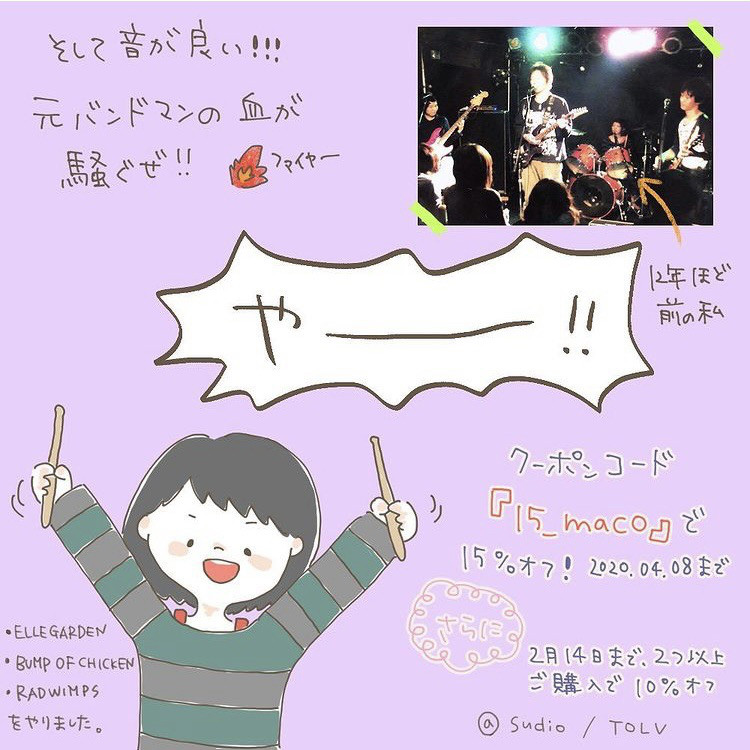 そして音が良い!!!
元バンドマンの血が
騒ぐぜ!!
ファイヤー
12年ほど
前の私
やーーー!!
クーポンコード
『15_maco』で
15%オフ! 2020.04.08まで
さらに
2月14日まで、2つ以上
ご購入で10%オフ
・ELLEGARDEN
・BUMP OF CHICKEN
・RADWIMPS
をやりました。
@ sudio / TOLV